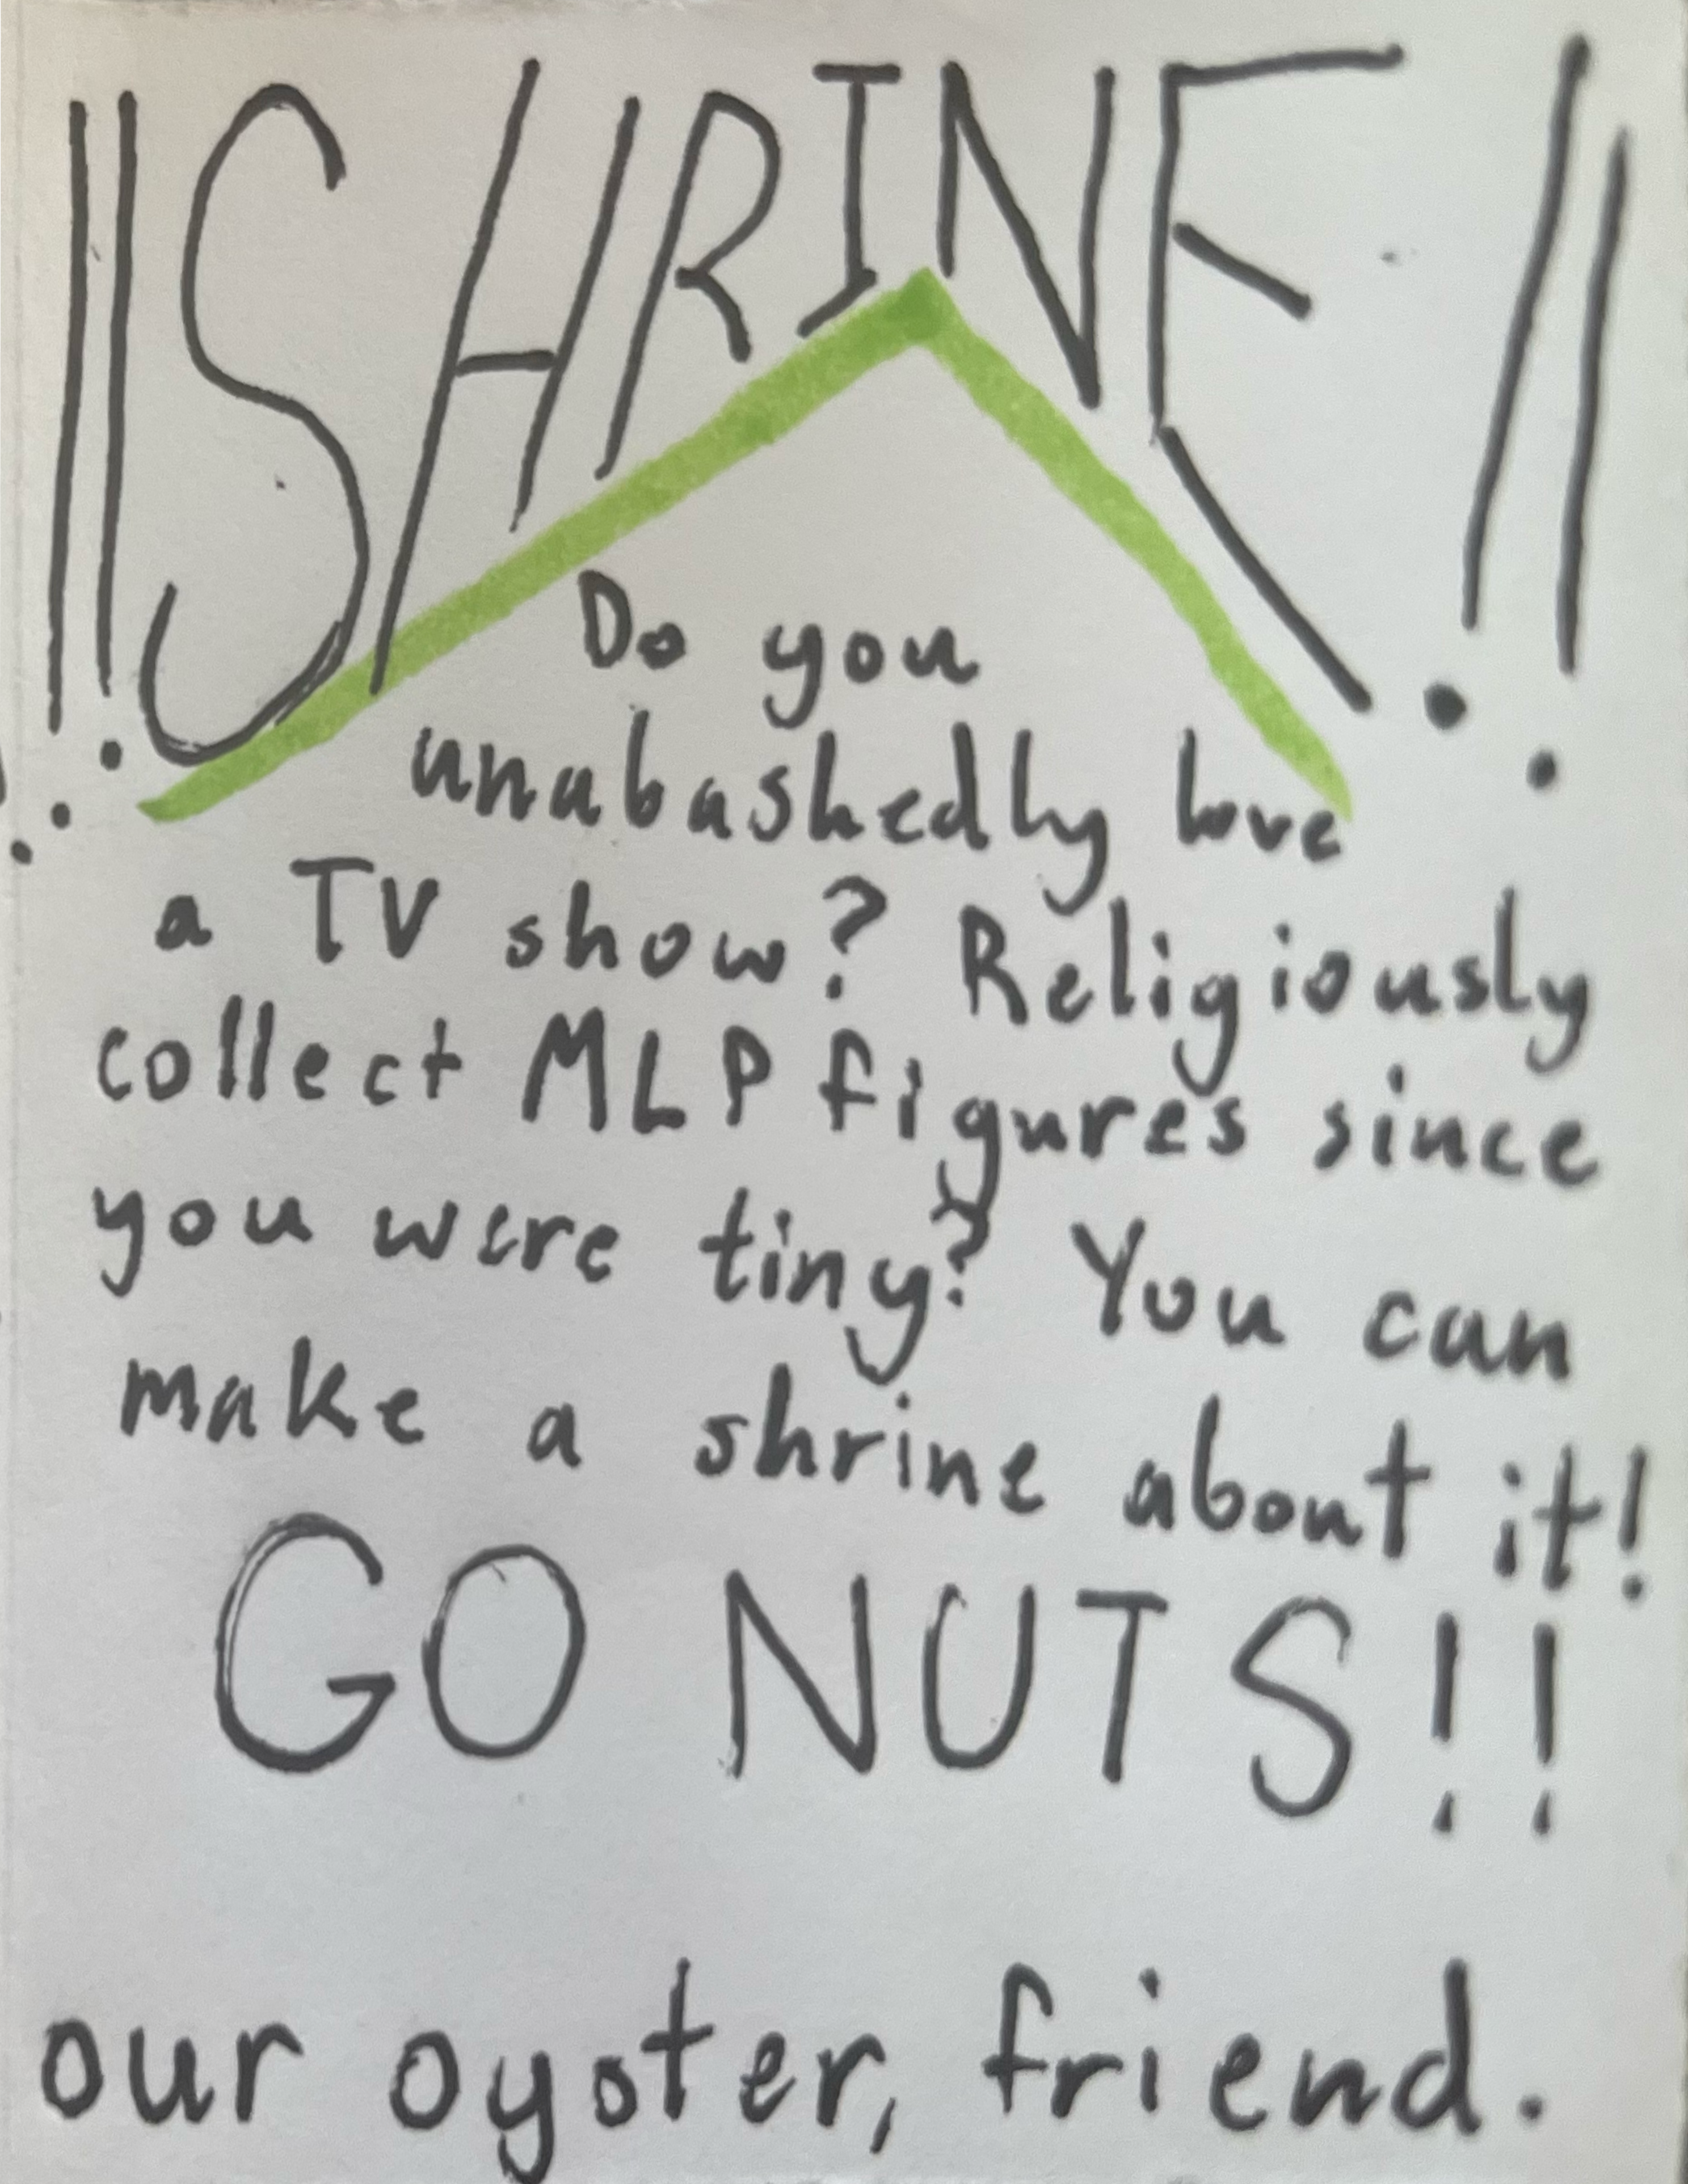 !!SHRINE!!
Do you
unabashedly love
a TV show? Religiously
collect MLP figures since
you were tiny? You can
make a shrine about it!
GO NUTS!!
our oyster, friend.